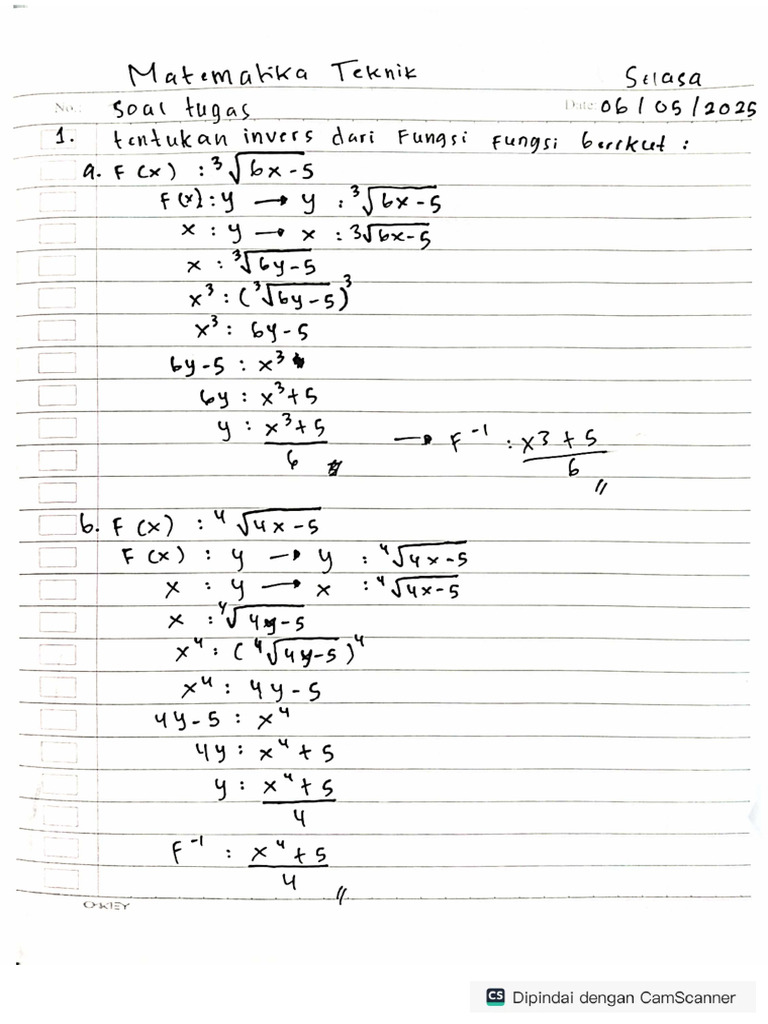 Matematika Teknik
Selasa
No.: soal tugas Date: 06/05/2025
1. tentukan invers dari Fungsi Fungsi berikut :
a. F(x) : ³√(6x-5)
F(x) : y → y : ³√(6x-5)
x : y → x : 3√(6x-5)
x : ³√(6y-5)
x³ : (³√(6y-5))³
x³ : 6y-5
6y-5 : x³
6y : x³+5
y : (x³+5)/6 → F⁻¹ : (x3+5)/6 //
b. F(x) : ⁴√(4x-5)
F(x) : y → y : ⁴√(4x-5)
x : y → x : ⁴√(4x-5)
x : ⁴√(4y-5)
x⁴ : (⁴√(4y-5))⁴
x⁴ : 4y-5
4y-5 : x⁴
4y : x⁴+5
y : (x⁴+5)/4
F⁻¹ : (x⁴+5)/4 //
O-KEY
CS Dipindai dengan CamScanner